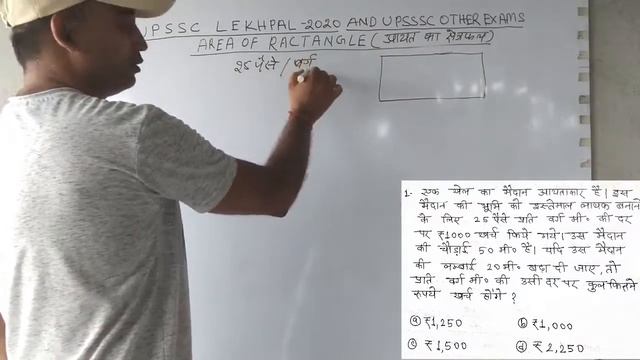 UPSSC LEKHPAL-2020 AND UPSSSC OTHER EXAMS
AREA OF RACTANGLE (आयत का क्षेत्रफल)
२५ पैसे / वर्ग
1. एक खेल का मैदान आयताकार है। इस
मैदान की भूमि को इस्तेमाल लायक बनाने
के लिए 25 पैसे प्रति वर्ग मी० की दर
पर ₹1000 खर्च किये गये। उस मैदान
की चौड़ाई 50 मी० है। यदि उस मैदान
की लम्बाई 20 मी० बढ़ा दी जाए, तो
प्रति वर्ग मी० की उसी दर पर कुल कितने
रुपये खर्च होंगे ?
ⓐ ₹1,250 ⓑ ₹1,000
ⓒ ₹1,500 ⓓ ₹2,250